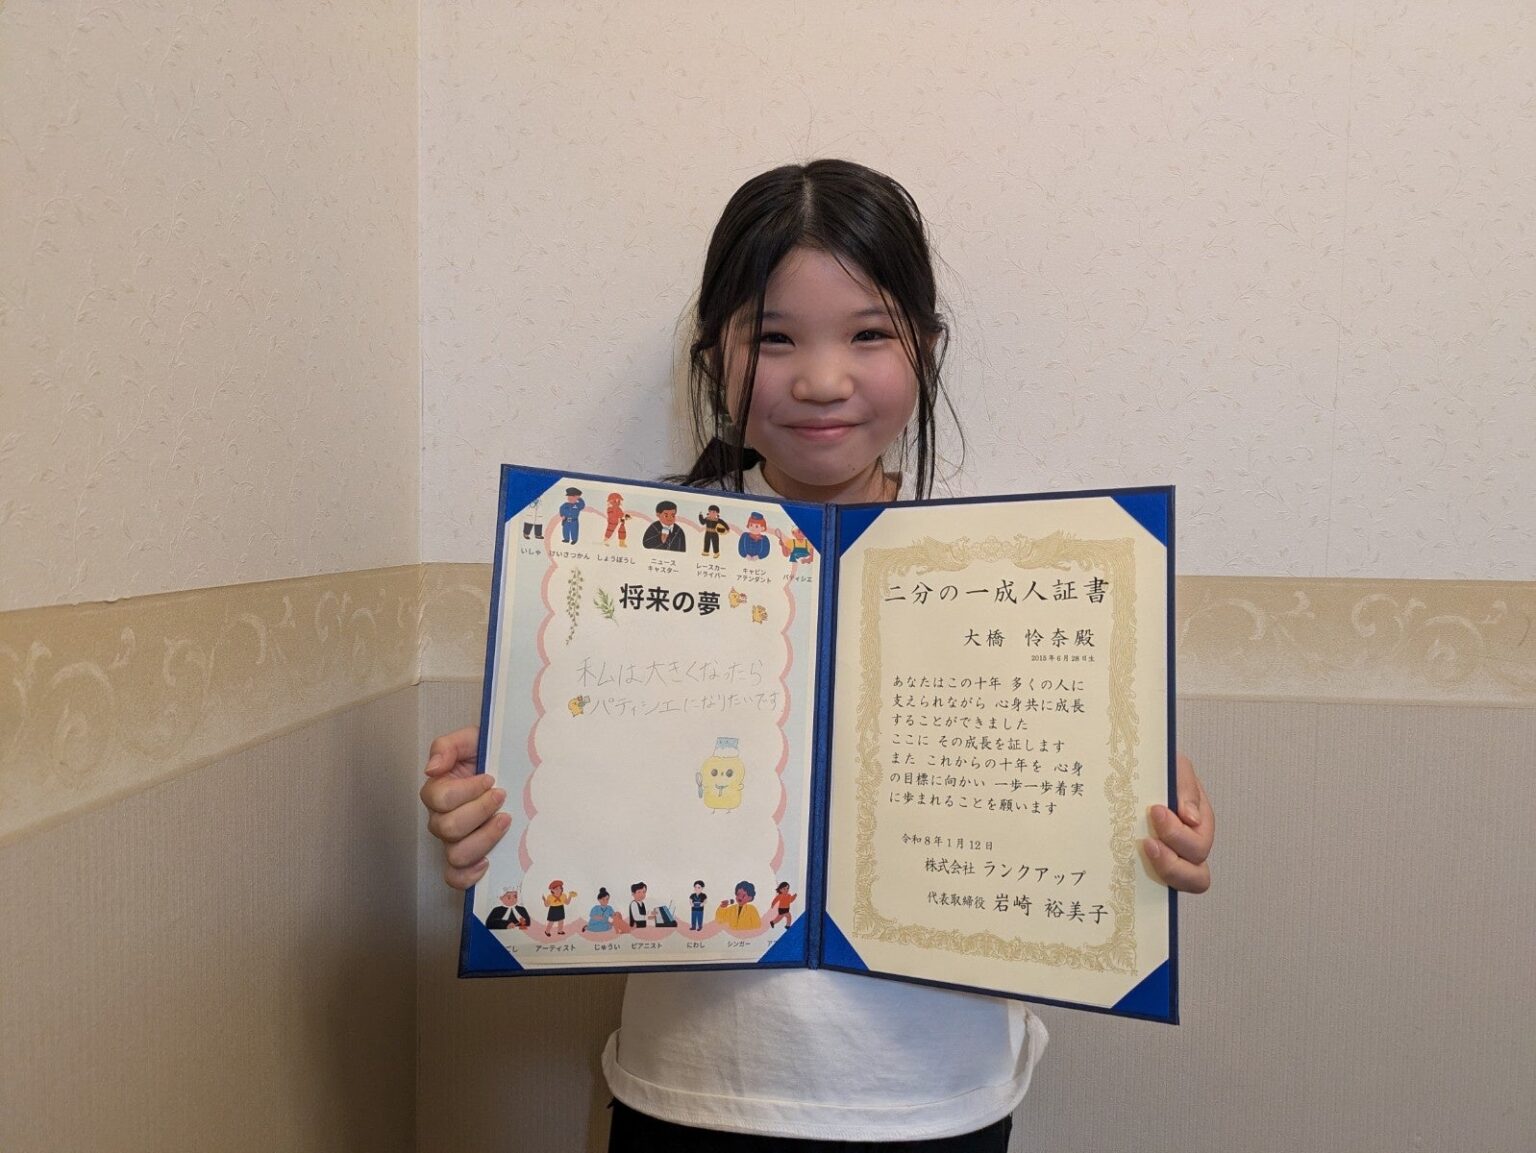 いしゃ
けいさつかん
しょうぼうし
ニュース
キャスター
レースカー
ドライバー
キャビン
アテンダント
パティシエ
将来の夢
私は大きくなったら
パティシエになりたいです
アーティスト
じゅうい
ピアニスト
にわし
シンガー
二分の一成人証書
大橋 怜奈殿
2015年6月28日生
あなたはこの十年 多くの人に
支えられながら 心身共に成長
することができました
ここに その成長を証します
また これからの十年を 心身
の目標に向かい 一歩一歩着実
に歩まれることを願います
令和8年1月12日
株式会社 ランクアップ
代表取締役 岩崎 裕美子